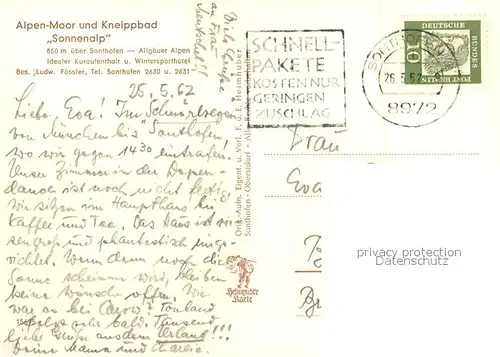 Alpen-Moor und Kneippbad
„Sonnenalp"
850 m über Sonthofen — Allgäuer Alpen
Idealer Kuraufenthalt u. Wintersporthotel
Bes. Ludw. Fässler, Tel. Sonthofen 2630 u. 2631
25.5.62
Liebe Eva! Im Schnürlregen
von München bis Sonthofen,
wo wir gegen 1430 eintrafen!
Unser Zimmer in der Depen-
dance ist noch nicht fertig,
wir sitzen im Haupthaus bei
Kaffee und Tee. Das Haus ist rie-
sengroß und phantastisch einge-
richtet. Wenn dann noch die
Sonne scheinen wird, bleiben
keine Wünsche offen. Wie
war es bei Tonband
sehr bald. Tausend
liebe Grüße aus dem Urlaub!!!
Deine Mama und Charlie.
Viele Grüße
an Frau
Orig.-Aufn. Eigent. u. Verl. F. u. E. Heimhuber
Sonthofen - Oberstdorf - Alle Rechte vorbehalten
Heimhuber
Karte
SCHNELL-
PAKETE
KOSTEN NUR
GERINGEN
ZUSCHLAG
SONTHOFEN
26.5.62
8972
DEUTSCHE
BUNDESPOST
10
Frau
Eva
privacy protection
Datenschutz